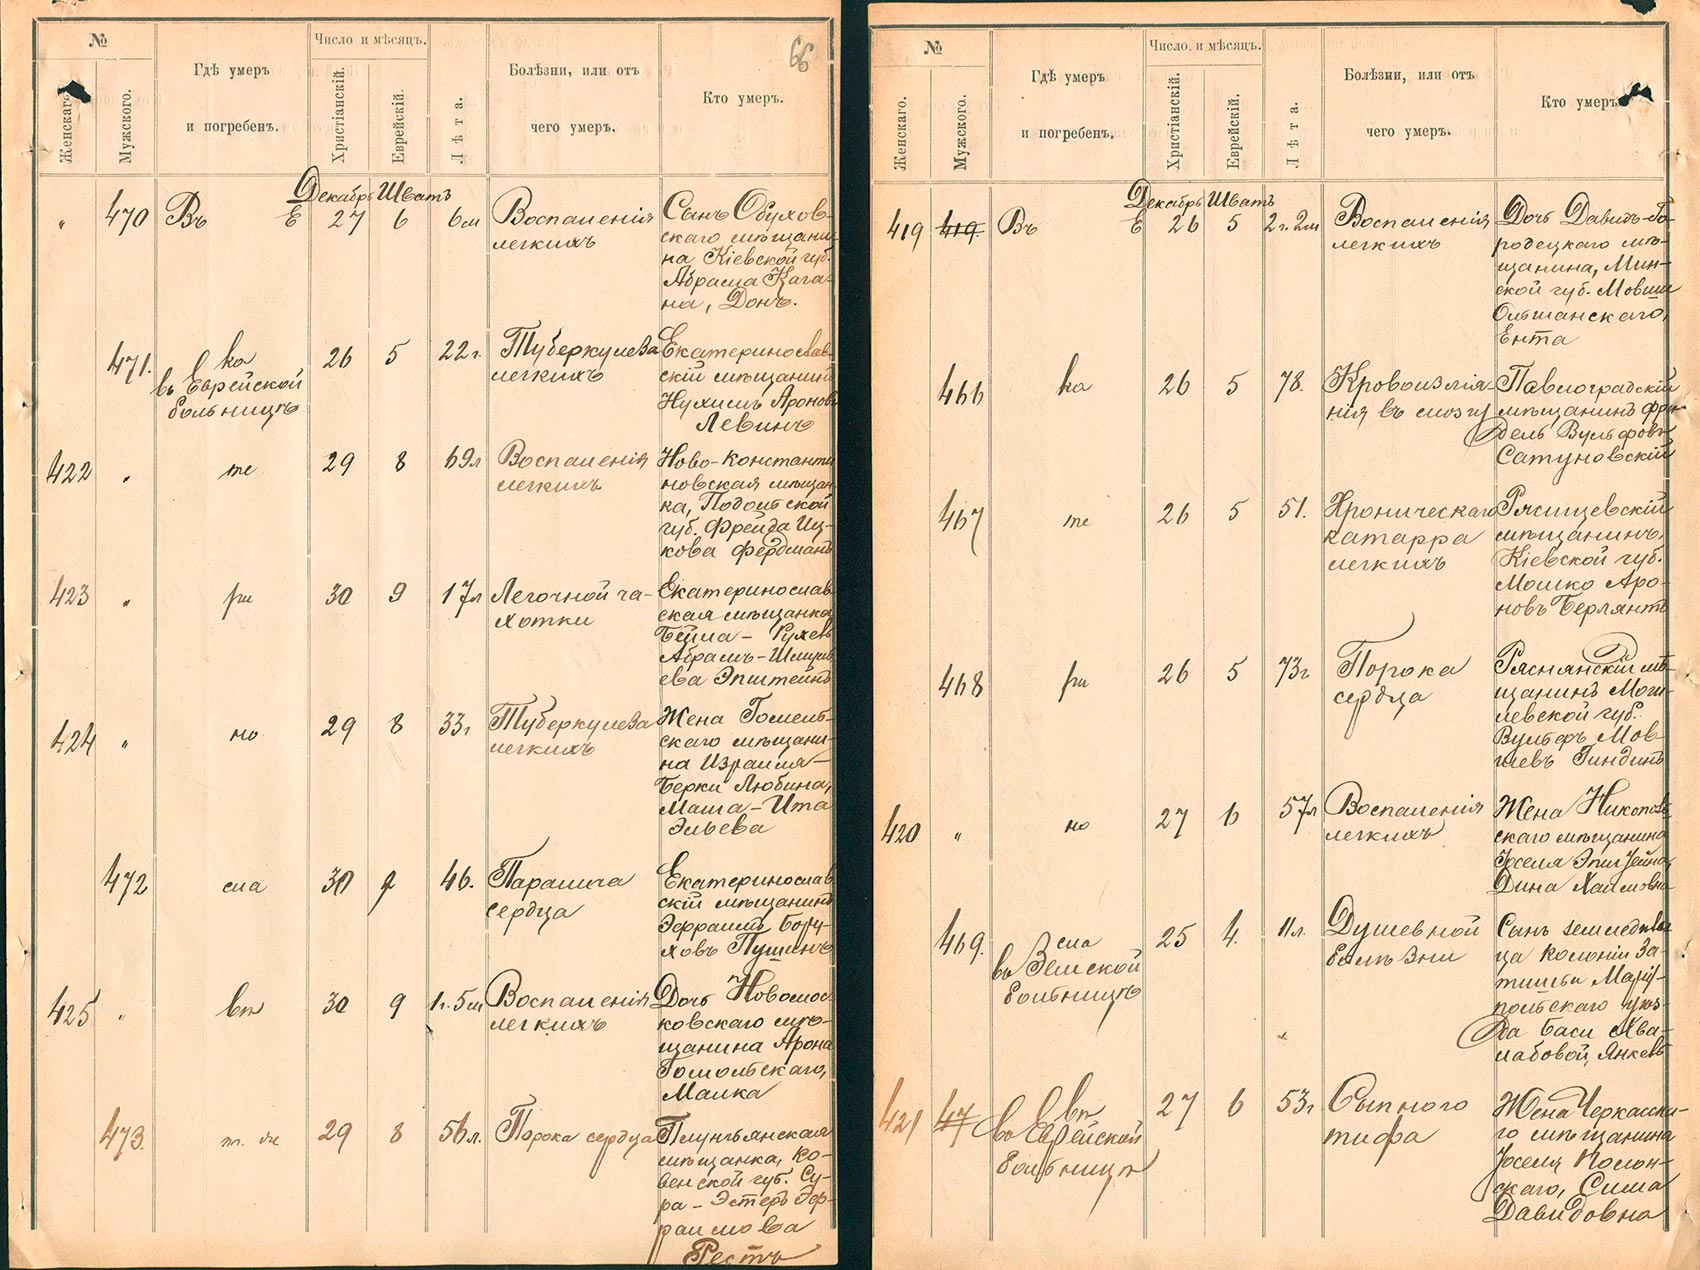 66
№
Женскаго.
Мужского.
Гдѣ умеръ
и погребенъ.
Число и мѣсяцъ.
Христіанскій.
Еврейскій.
Лѣта.
Болѣзни, или отъ
чего умеръ.
Кто умеръ.
Декабрь Шватъ
" 470 Въ Е 27 6 6м
Воспаленія
легкихъ
Сынъ Обухов-
скаго мѣщани-
на Кіевской губ.
Абрама Кага-
на, Донъ.
471. ка
въ Еврейской
больницѣ
26 5 22г.
Туберкулеза
легкихъ
Екатеринослав-
скій мѣщанинъ
НухимъАроновъ
Левинъ
422 " те 29 8 69л
Воспаленія
легкихъ
Ново-Константи
новская мѣщан
ка, Подольской
губ. Фрейда Иц-
кова Фердманъ
423 " ри 30 9 17л
Легочной ча-
хотки
Екатеринослав-
ская мѣщанка
Бейла-Рухля
Абрамъ-Шмуле
ева Эпштейнъ
424 " но 29 8 33г
Туберкулеза
легкихъ
Жена Гомель-
скаго мѣщани-
на Израиля-
Берки Любина,
Маша-Ита
Эльева
472 сла 30 9 46.
Паралича
сердца
Екатеринослав
скій мѣщанинъ
Эфраимъ Бору-
ховъ Пушинъ
425 " вл 30 9 1г. 5м
Воспаленія
легкихъ
Дочь Новомос-
ковскаго мѣ-
щанина Арона
Гомольскаго,
Малка
473. 29 8 56л.
Порока сердца
Плунгьянская
мѣщанка, Ко-
венской губ. Су-
ра-Эстеръ Эф-
раимова
Рестъ
№
Женскаго.
Мужского.
Гдѣ умеръ
и погребенъ.
Число и мѣсяцъ.
Христіанскій.
Еврейскій.
Лѣта.
Болѣзни, или отъ
чего умеръ.
Кто умеръ.
Декабрь Шватъ
419 419. Въ Е 26 5 2г. 2м
Воспаленія
легкихъ
Дочь Давидъ-Го-
родецкаго мѣ-
щанина, Мин-
ской губ. Мовши
Ольшанскаго,
Ента
466 ка 26 5 78.
Кровоизлія-
нія въ мозгу
Павлоградскій
мѣщанинъ Фри-
дель Вульфовъ
Сатуновскій
467 те 26 5 51.
Хроническаго
катарра
легкихъ
Рясищевскій
мѣщанинъ,
Кіевской губ.
Мошко Аро-
новъ Берлянтъ
468 ри 26 5 73г
Порока
сердца
Ряснянскій мѣ-
щанинъ Моги-
левской губ.
Вульфъ Мов-
шевъ Гиндинъ
420 " но 27 6 57л
Воспаленія
легкихъ
Жена Никополь
скаго мѣщанина
Іоселя Эпштейна,
Дина Хаимовна
469. сла
въ Земской
больницѣ
25 4. 11л.
Душевной
болѣзни
Сынъ земледѣль
ца колоніи За-
тишья Маріу-
польскаго уѣз-
да Баси Хва-
лабовой, Янкель
421 47 вл
въ Еврейской
больницѣ
27 6 53г
Сыпного
тифа
Жена Черкасска-
го мѣщанина
Іоселя Полон-
скаго, Сима
Давидовна